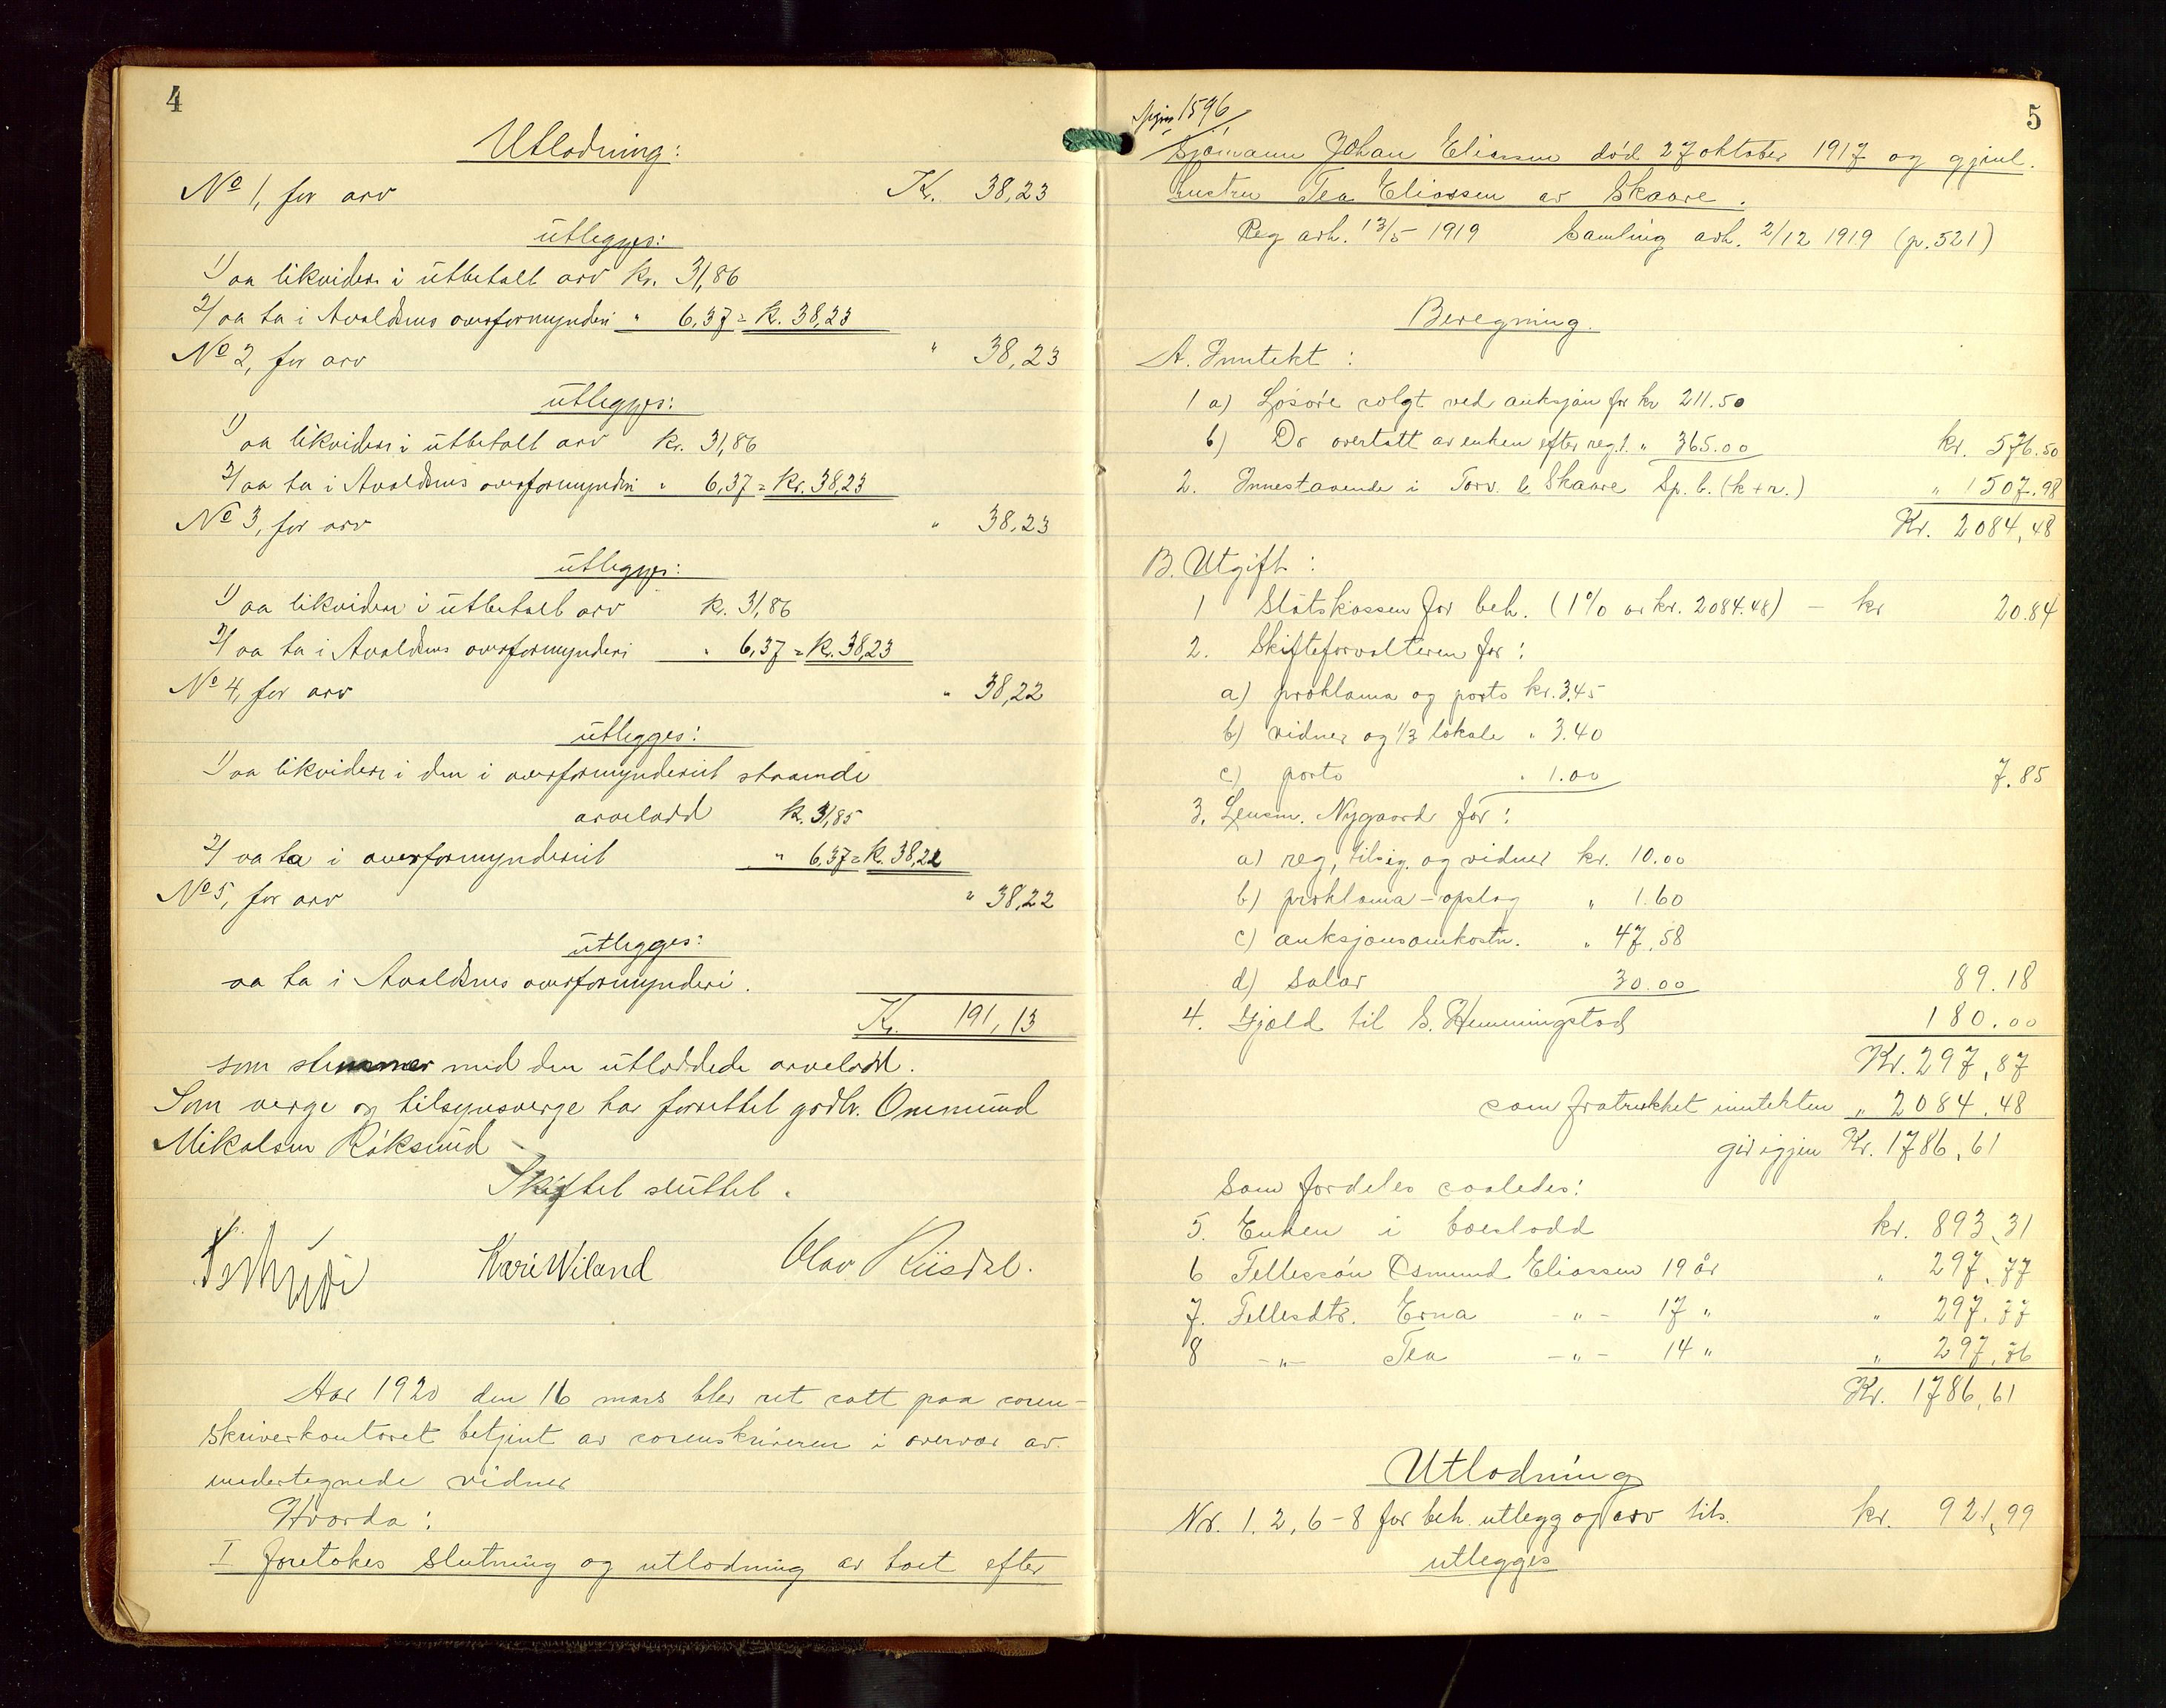 4
Utlodning:
No 1, for arv Kr. 38,23
utlegges:
1) aa likvidere i utbetalt arv kr. 31,86
2) aa ta i Avaldsnes overformynderi " 6,37 = kr. 38,23
No 2, for arv " 38,23
utlegges:
1) aa likvidere i utbetalt arv kr. 31,86
2) aa ta i Avaldsnes overformynderi " 6,37 = kr. 38,23
No 3, for arv " 38,23
utlegges:
1) aa likvidere i utbetalt arv kr. 31,86
2) aa ta i Avaldsnes overformynderi " 6,37 = kr. 38,23
No 4, for arv " 38,22
utlegges:
1) aa likvidere i den i overformynderiet staaende
arvelodd kr. 31,85
2) aa ta i overformynderiet " 6,37 = kr. 38,22
No 5, for arv " 38,22
utlegges:
aa ta i Avaldsnes overformynderi.
Kr. 191,13
som stemmer med den utloddede arvelodd.
Som verge og tilsynsverge har forrettet grdbr. Ommund
Mikalsen Røksund
Skiftet sluttet.
Kari Wiland Olav Riisdal.
Aar 1920 den 16 mars blev ret satt paa soren-
skriverkontoret betjent av sorenskriveren i overvær av
undertegnede vidner
Hvorda:
I foretokes slutning og utlodning av boet efter
5
1596
Sjømann Johan Eliassen død 27 oktober 1917 og gjenl.
hustru Tea Eliassen av Skaare.
Reg avh. 13/5 1919 Samling avh. 2/12 1919 (p. 521)
Beregning.
A. Inntekt:
1 a) Løsøre solgt ved auksjon for kr 211.50
b) Do overtatt av enken efter regt. " 365.00 kr. 576.50
2. Innestaaende i Torv. & Skaare Sp. b. (k + r.) " 1507.98
Kr. 2084,48
B. Utgift:
1 Statskassen for beh. (1% av kr. 2084.48) - kr 20.84
2. Skifteforvalteren for:
a) proklama og porto kr. 3.45
b) vidner og 1/3 lokale " 3.40
c) porto " 1.00 7.85
3. Lensm. Nygaard for:
a) reg, tilsig. og vidner kr. 10.00
b) proklama-opslag " 1.60
c) auksjonsomkostn. " 47.58
d) Salær 30.00 89.18
4. Gjæld til S. Hemmingstad 180.00
Kr. 297,87
som fratrukket inntekten " 2084.48
gir igjen Kr. 1786,61
Som fordeles saaledes:
5. Enken i boeslodd kr. 893,31
6 Fellessøn Osmund Eliassen 19 år " 297,77
7. Fellesdtr. Erna - " - 17 " " 297,77
8 - " - Tea - " - 14 " " 297,76
Kr. 1786,61
Utlodning
Nr. 1. 2, 6-8 for beh. utlegg og arv tils. kr. 921,99
utlegges